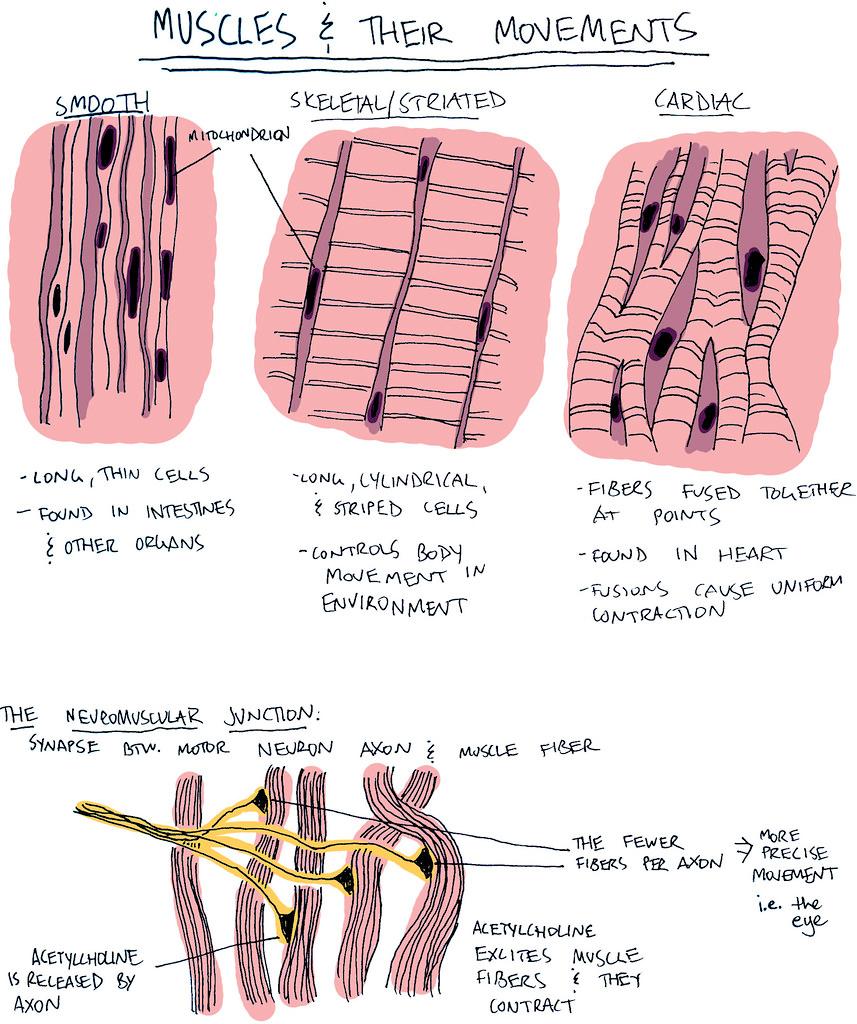 MUSCLES & THEIR MOVEMENTS
SMOOTH
SKELETAL/STRIATED
CARDIAC
MITOCHONDRION
- LONG, THIN CELLS
- FOUND IN INTESTINES
& OTHER ORGANS
- LONG, CYLINDRICAL,
& STRIPED CELLS
- CONTROLS BODY
MOVEMENT IN
ENVIRONMENT
- FIBERS FUSED TOGETHER
AT POINTS
- FOUND IN HEART
- FUSIONS CAUSE UNIFORM
CONTRACTION
THE NEUROMUSCULAR JUNCTION:
SYNAPSE BTW. MOTOR NEURON AXON & MUSCLE FIBER
THE FEWER
FIBERS PER AXON
→ MORE
PRECISE
MOVEMENT
i.e. the
eye
ACETYLCHOLINE
IS RELEASED BY
AXON
ACETYLCHOLINE
EXCITES MUSCLE
FIBERS & THEY
CONTRACT